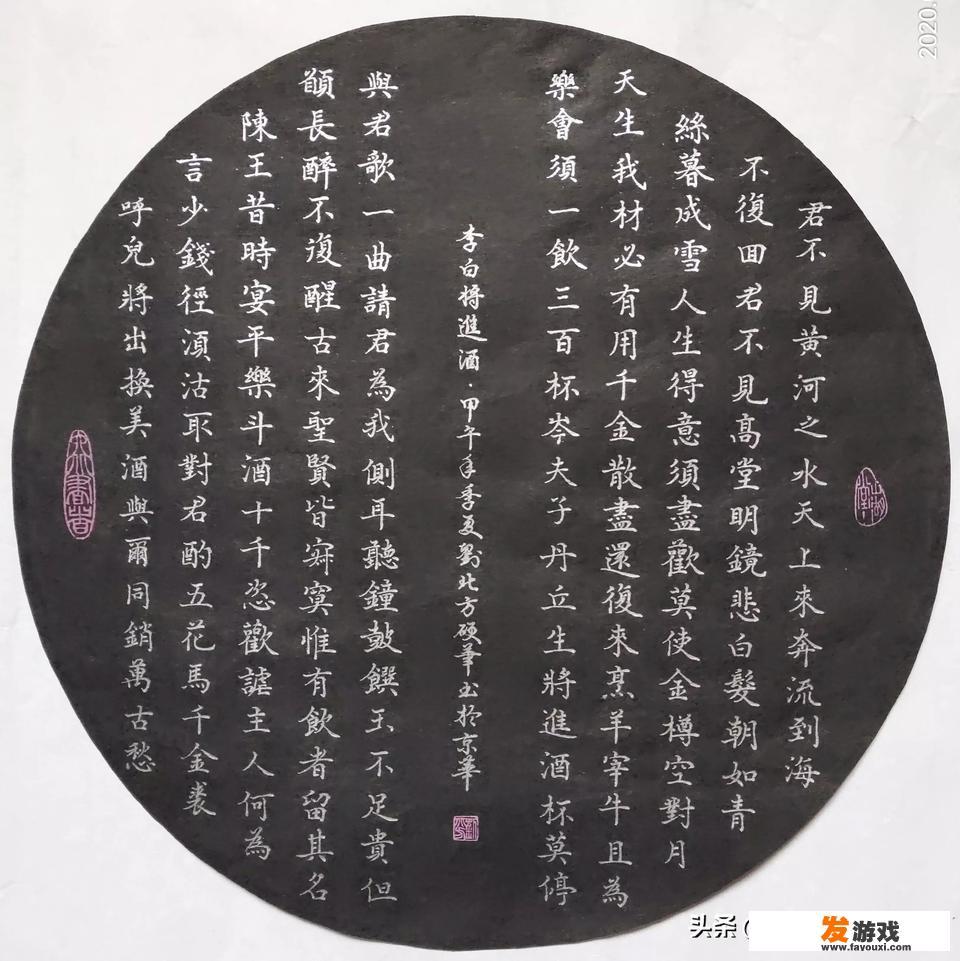 君不見黃河之水天上來奔流到海
不復回君不見高堂明鏡悲白髮朝如青
絲暮成雪人生得意須盡歡莫使金樽空對月
天生我材必有用千金散盡還復來烹羊宰牛且為
樂會須一飲三百杯岑夫子丹丘生將進酒杯莫停
李白將進酒·甲午年季夏劉北方硬筆書於京華
與君歌一曲請君為我側耳聽鐘鼓饌玉不足貴但
願長醉不復醒古來聖賢皆寂寞惟有飲者留其名
陳王昔時宴平樂斗酒十千恣歡謔主人何為
言少錢徑須沽取對君酌五花馬千金裘
呼兒將出換美酒與爾同銷萬古愁
2020.
头条
发游戏
www.fayouxi.com